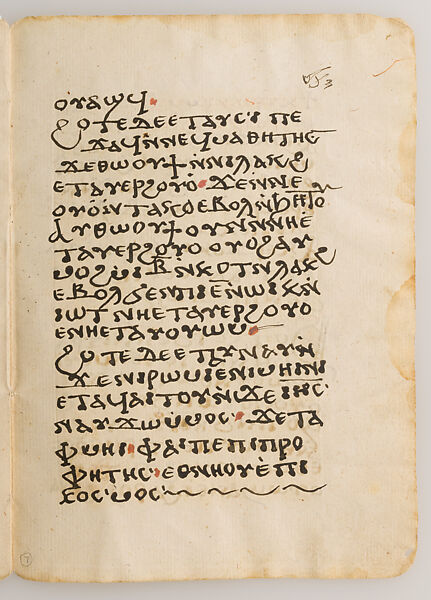 ⲟⲩⲁϣϥ·
ϩⲟⲧⲉ ⲇⲉ ⲉⲧⲁⲩⲥⲓ ⲡⲉ
ϫⲁϥ ⲛⲛⲉϥⲙⲁⲑⲏⲧⲏⲥ
ϫⲉ ⲑⲱⲟⲩϯ ⲛⲛⲓⲗⲁⲕϩ
ⲉⲧⲁⲩⲉⲣϩⲟⲩⲟ̀· ϫⲉ ⲛⲛⲉ
ⲟⲩⲟ̀ⲛ ⲧⲁⲕⲟ ⲉⲃⲟⲗ ⲛϧⲏⲧⲟⲩ
ⲁⲩⲑⲱⲟⲩϯ ⲟⲩⲛ ⲛⲛⲏⲉ̀
ⲧⲁⲩⲉⲣϩⲟⲩⲟ ⲟⲩⲟϩ ⲁⲩ
ⲙⲟϩ ⲙⲓⲃ̅ ⲛⲕⲟⲧ ⲛⲗⲁⲕϩ
ⲉⲃⲟⲗϧⲉⲛ ⲡⲓⲉ̀ ⲛⲱⲓⲕ ⲛ
ⲓⲱⲧ ⲛⲏⲉⲧⲁⲩⲉⲣϩⲟⲩⲟ
ⲉⲛⲏⲉⲧⲁⲩⲟⲩⲱⲙ·
ϩⲟⲧⲉ ⲇⲉ ⲉⲧⲁⲩⲛⲁⲩ ⲛ
ϫⲉ ⲛⲓⲣⲱⲙⲓ ⲉⲛⲓⲙⲏⲓⲛⲓ
ⲉⲧⲁϥⲁⲓⲧⲟⲩ ⲛϫⲉ ⲓⲏ̅ⲥ̅·
ⲛⲁⲩϫⲱ ⲙⲙⲟⲥ· ϫⲉ ⲧⲁ
ⲫⲙⲏⲓ· ⲫⲁⲓ ⲡⲉ ⲡⲓⲡⲣⲟ
ⲫⲏⲧⲏⲥ· ⲉⲑⲛⲏⲟⲩ ⲉ̀ⲡⲓ
ⲕⲟⲥⲙⲟⲥ·